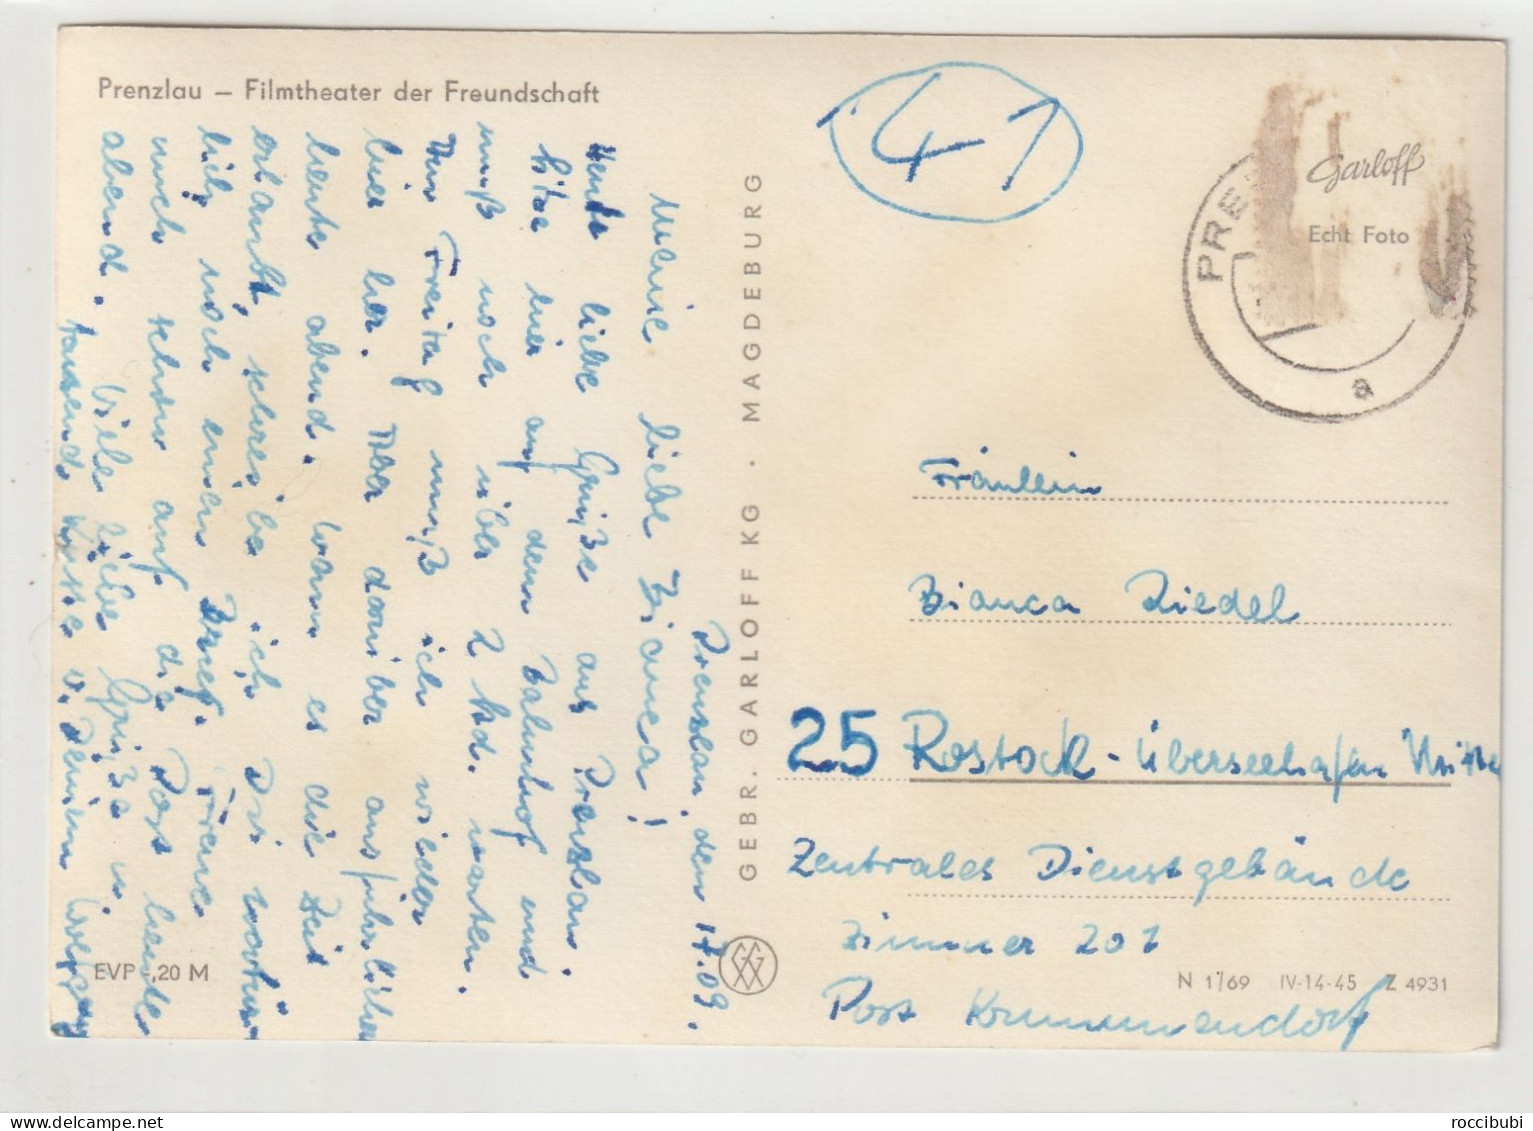 Prenzlau – Filmtheater der Freundschaft
Prenzlau, den 17.09.
Meine liebe Bianca!
Heute liebe Grüße aus Prenzlau.
Sitze hier auf dem Bahnhof und
muß noch über 2 Std. warten.
Am Freitag muß ich wieder
hier her. Aber darüber ausführlicher
heute abend. Wann es die Zeit
erlaubt, schreibe ich Dir natür-
lich noch einen Brief. Freue
mich schon auf die Post heute
abend. Viele liebe Grüße u.
tausend Küsse v. Deinem Wolfgang
EVP -,20 M
GEBR. GARLOFF KG · MAGDEBURG
41
PRE
a
Garloff
Echt Foto
Fräulein
Bianca Riedel
25 Rostock - Überseehafen Mitte
Zentrales Dienstgebäude
Zimmer 201
Post
N 1/69 IV-14-45 Z 4931
roccibubi